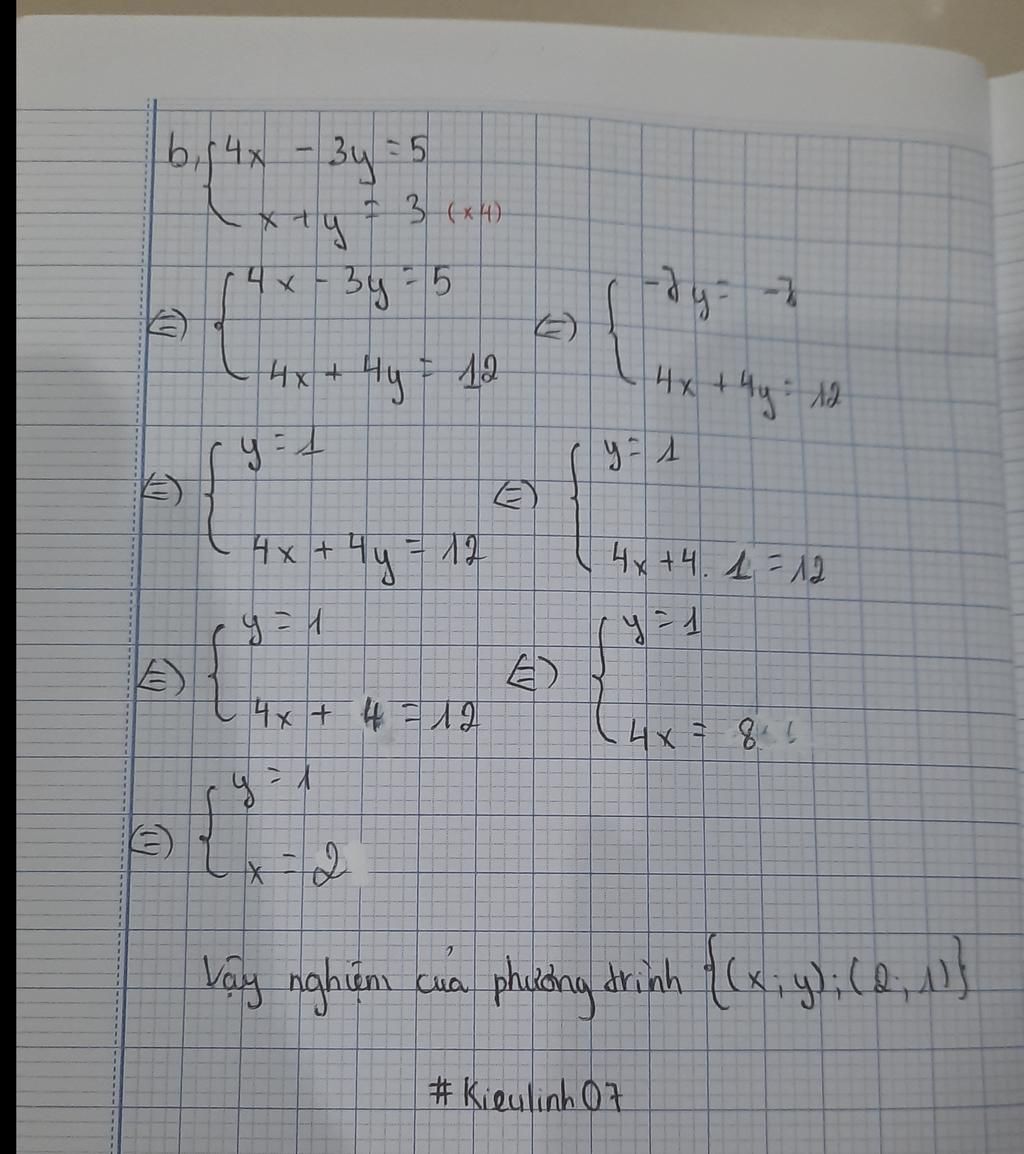 b, { 4x - 3y = 5
x + y = 3 (x4)
⇔ { 4x - 3y = 5 ⇔ { -7y = -7
4x + 4y = 12 4x + 4y = 12
⇔ { y = 1 ⇔ { y = 1
4x + 4y = 12 4x + 4. 1 = 12
⇔ { y = 1 ⇔ { y = 1
4x + 4 = 12 4x = 8
⇔ { y = 1
x = 2
Vậy nghiệm của phương trình {(x; y); (2; 1)}
#Kieulinh07